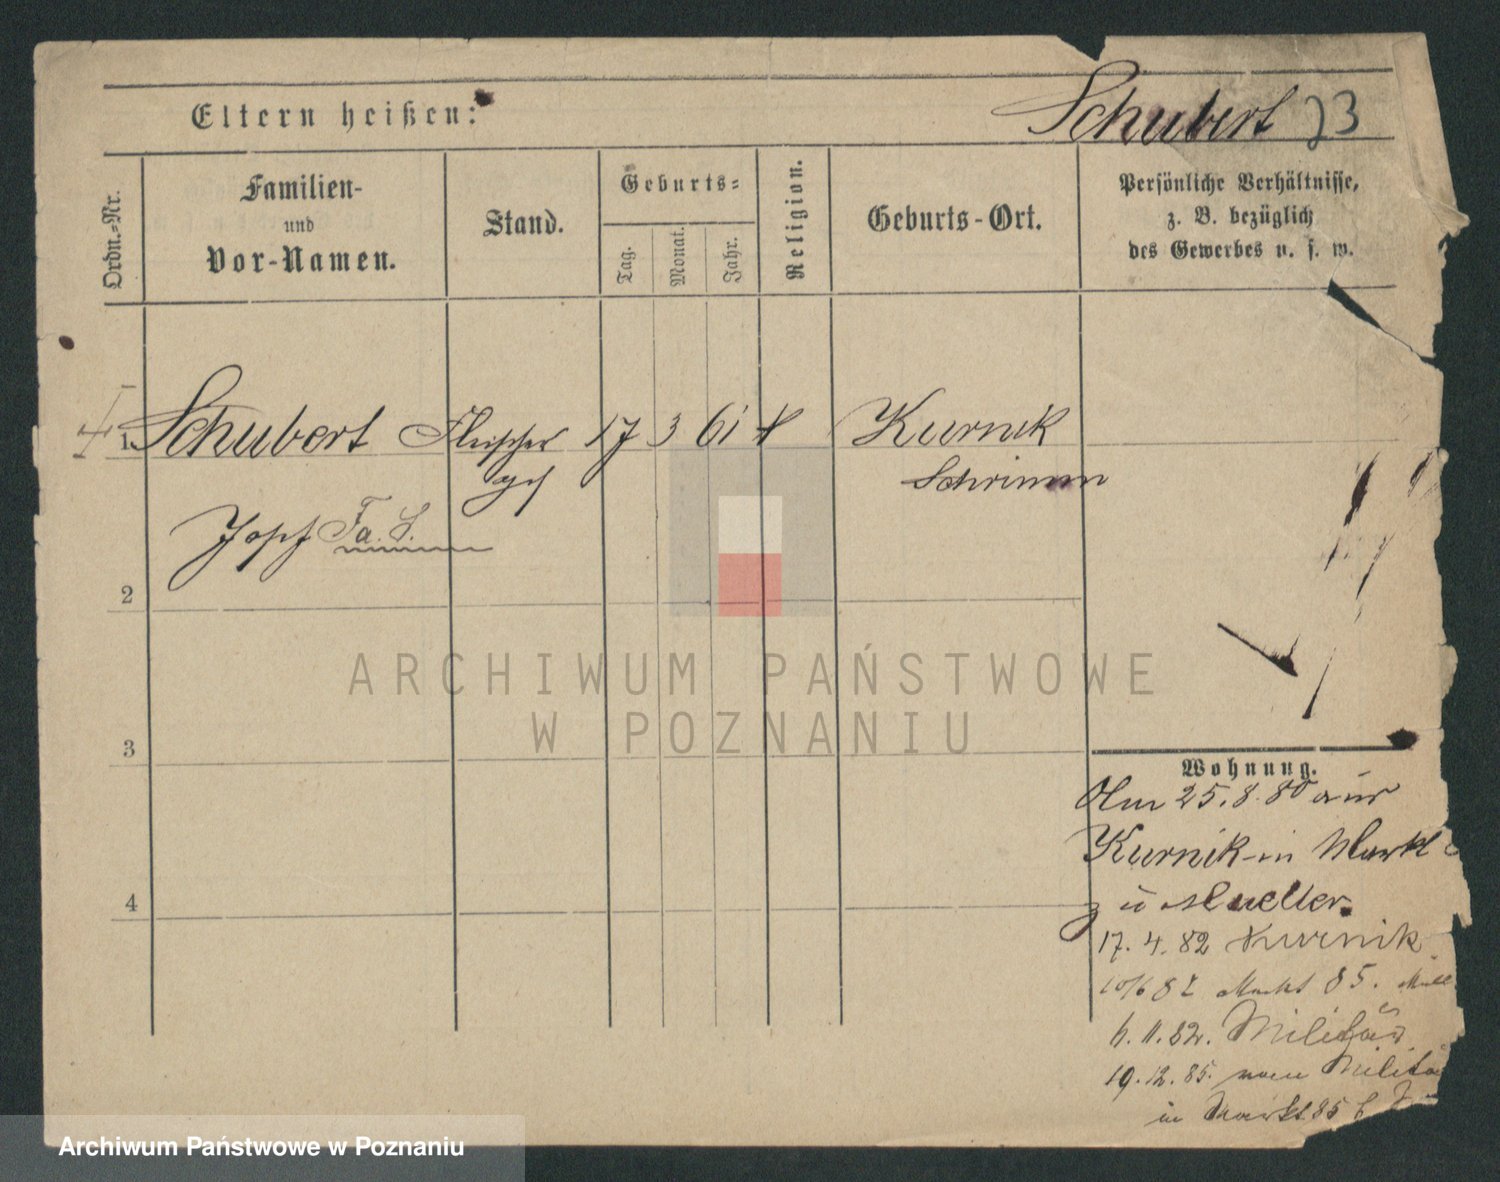 Eltern heißen:
Schubert 73
Ordn.-Nr.
Familien-
und
Vor-Namen.
Stand.
Geburts-
Tag.
Monat.
Jahr.
Religion.
Geburts-Ort.
Persönliche Verhältnisse,
z. B. bezüglich
des Gewerbes u. s. w.
1 Schubert Fleischer 17 3 61 Kurnik
Schrimm
2
3
4
ARCHIWUM PAŃSTWOWE
W POZNANIU
Wohnung.
25.8.80 aus
Kurnik in Markt
zu Mueller.
17. 4. 82 Kurnik
10/6 82 Markt 85.
6. 11. 82. Militär
19. 12. 85. vom
in Markt 85
Archiwum Państwowe w Poznaniu